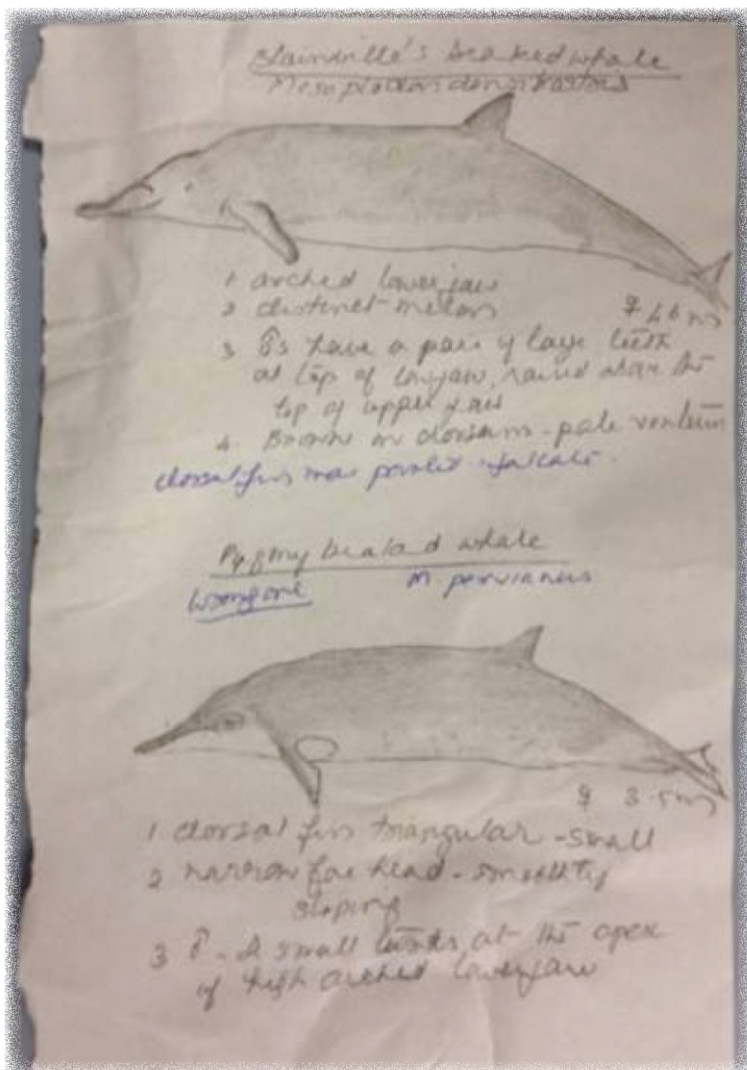 Blainville's beaked whale
Mesoplodon densirostris
1 arched lower jaw
2 distinct melon
♀ 4.6 m
3 ♂s have a pair of large teeth
at top of lowjaw, raised above the
top of upper jaw
4. Brown on dorsum - pale ventrum
dorsal fin more pointed - falcate.
Pygmy beaked whale
M peruvianus
♀ 3.5 m
1 dorsal fin triangular - small
2 narrow fore head - smoothly
sloping
3 ♂ - 2 small at the apex
of high arched lower jaw